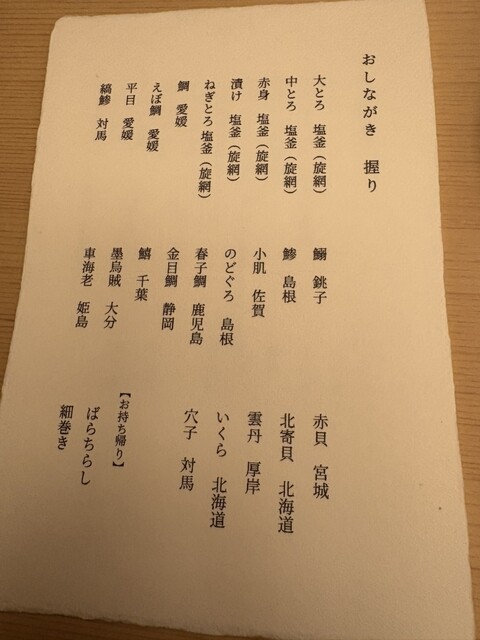 おしながき　握り
大とろ　塩釜（旋網）
中とろ　塩釜（旋網）
赤身　塩釜（旋網）
漬け　塩釜（旋網）
ねぎとろ　塩釜（旋網）
鯛　愛媛
えぼ鯛　愛媛
平目　愛媛
縞鯵　対馬
鰯　銚子
鯵　島根
小肌　佐賀
のどぐろ　島根
春子鯛　鹿児島
金目鯛　静岡
鱚　千葉
墨烏賊　大分
車海老　姫島
赤貝　宮城
北寄貝　北海道
雲丹　厚岸
いくら　北海道
穴子　対馬
【お持ち帰り】
ばらちらし
細巻き